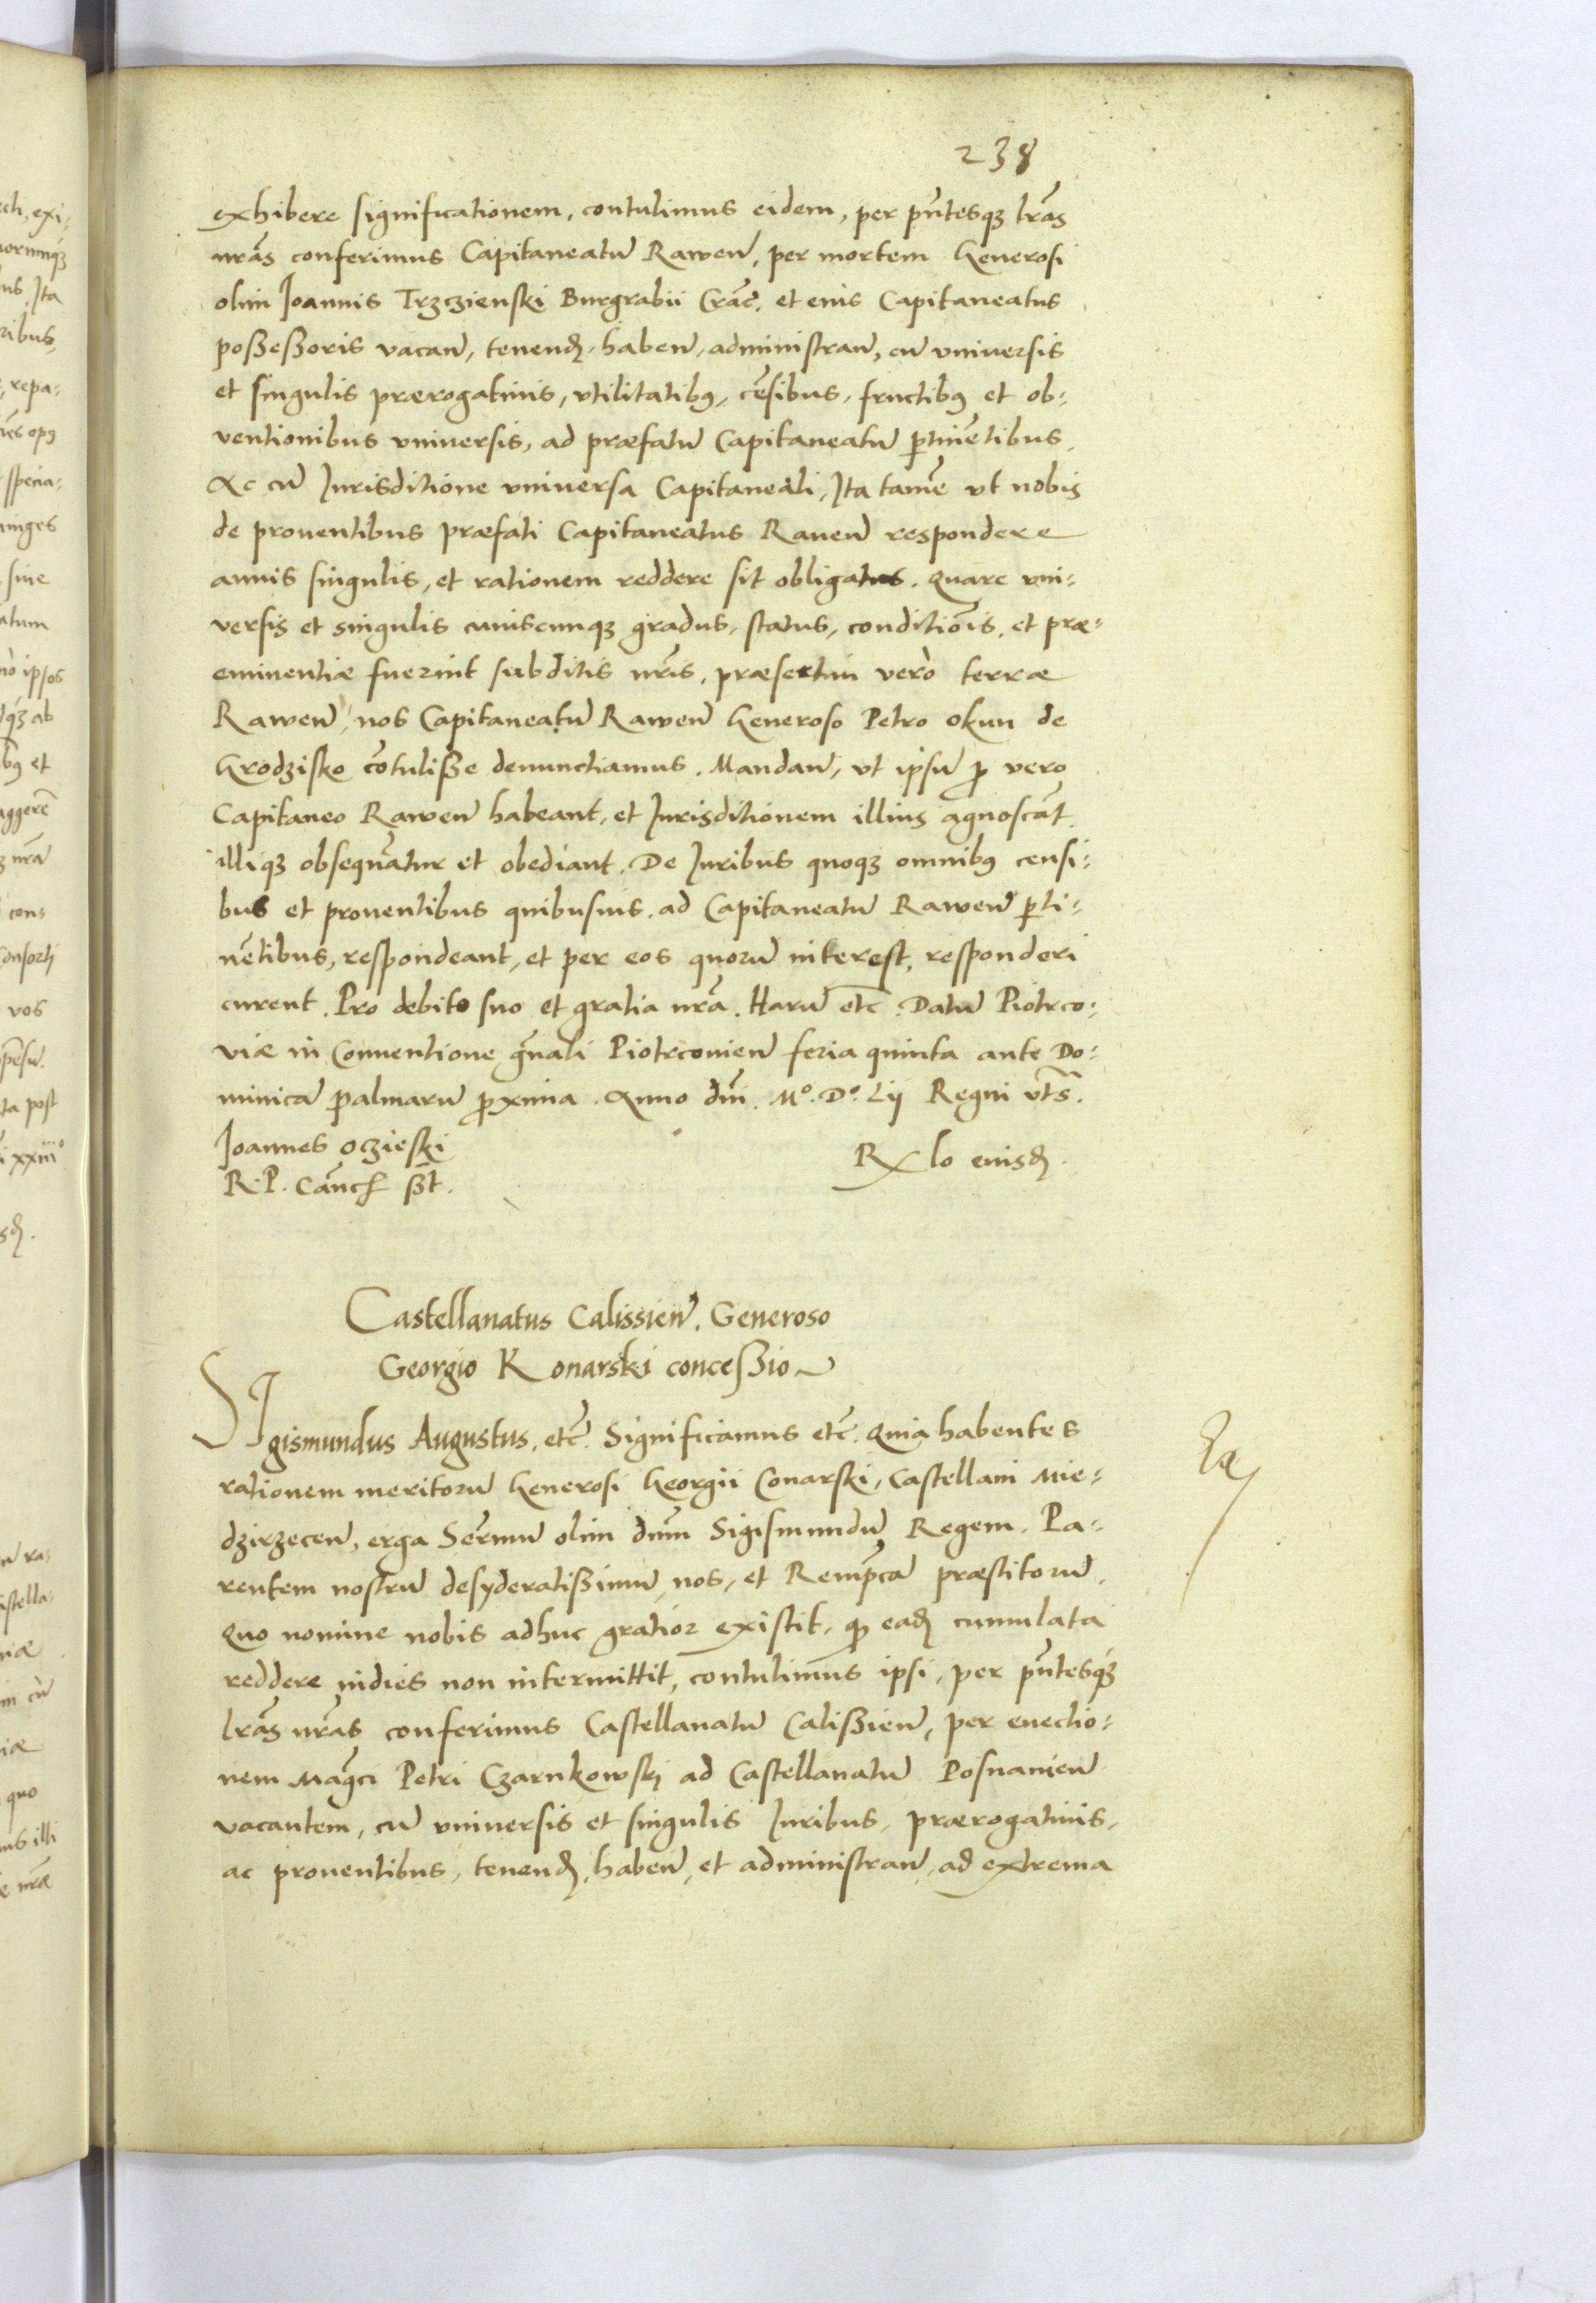 238
exhibere significationem, contulimus eidem, per pñtesqꝫ lr̃as
nr̃as conferimus Capitaneatũ Raweñ, per mortem Generosi
olim Joannis Trzczienski Burgrabii Crac̃. et eius Capitaneatus
poßeßoris vacañ, tenendꝭ, habeñ, administrañ, cũ vniversis
et singulis prærogativis, vtilitatibꝰ, cẽsibus, fructibꝰ et ob-
ventionibus vniversis, ad præfatũ Capitaneatũ ꝑtinẽtibus.
Ac cũ Jurisditione vniversa Capitaneali, Ita tamẽ vt nobis
de proventibus præfati Capitaneatus Raveñ respondere
annis singulis, et rationem reddere sit obligatus. Quare vni-
versis et singulis cuiuscunqꝫ gradus, status, conditiõis, et præ-
eminentiæ fuerint subditis nr̃is, præsertim verò terræ
Raweñ, nos Capitaneatũ Raweñ Generoso Petro Okun de
Grodzisko cõtuliße denunctiamus. Mandañ, vt ipsũ ꝓ vero
Capitaneo Raweñ habeant, et Jurisditionem illius agnoscãt
illiqꝫ obsequãtur et obediant. De Juribus quoqꝫ omnibꝰ censi-
bus et proventibus quibusuis, ad Capitaneatũ Raweñ ꝑti-
nẽtibus, respondeant, et per eos quorũ interest, responderi
curent. Pro debito suo et gratia nr̃a. Harũ etc̃. Datũ Piotrco-
viæ in Conventione gñali Piotrcovieñ feria quinta ante Do-
minicã palmarũ ꝓxima. Anno dñi. Mº. Dº. Lij Regni vt s̃.
Joannes Oczieski
R. P. Cãncꝭ ßt.
Rx lo eiusdꝭ.
Castellanatus Calissieñ. Generoso
Georgio Konarski conceßio
SIgismundus Augustus, etc̃. Significamus etc̃. Quia habentes
rationem meritorũ Generosi Georgii Conarski, Castellani Mie-
dzirzeceñ, erga Ser̃mũ olim dñm Sigismundũ Regem, Pa-
rentem nostrũ desyderatißimũ, nos, et Remp̃cã præstitorũ.
Quo nomine nobis adhuc gratior existit, qꝫ eadꝭ cumulata
reddere indies non intermittit, contulimus ipsi, per pñtesqꝫ
lr̃as nr̃as conferimus Castellanatũ Calißieñ, per evectio-
nem Mag̃ci Petri Czarnkowski ad Castellanatũ Posnanieñ
vacantem, cũ vniversis et singulis Juribus, prærogativis,
ac proventibus, tenendꝭ, habeñ, et administrañ, ad extrema